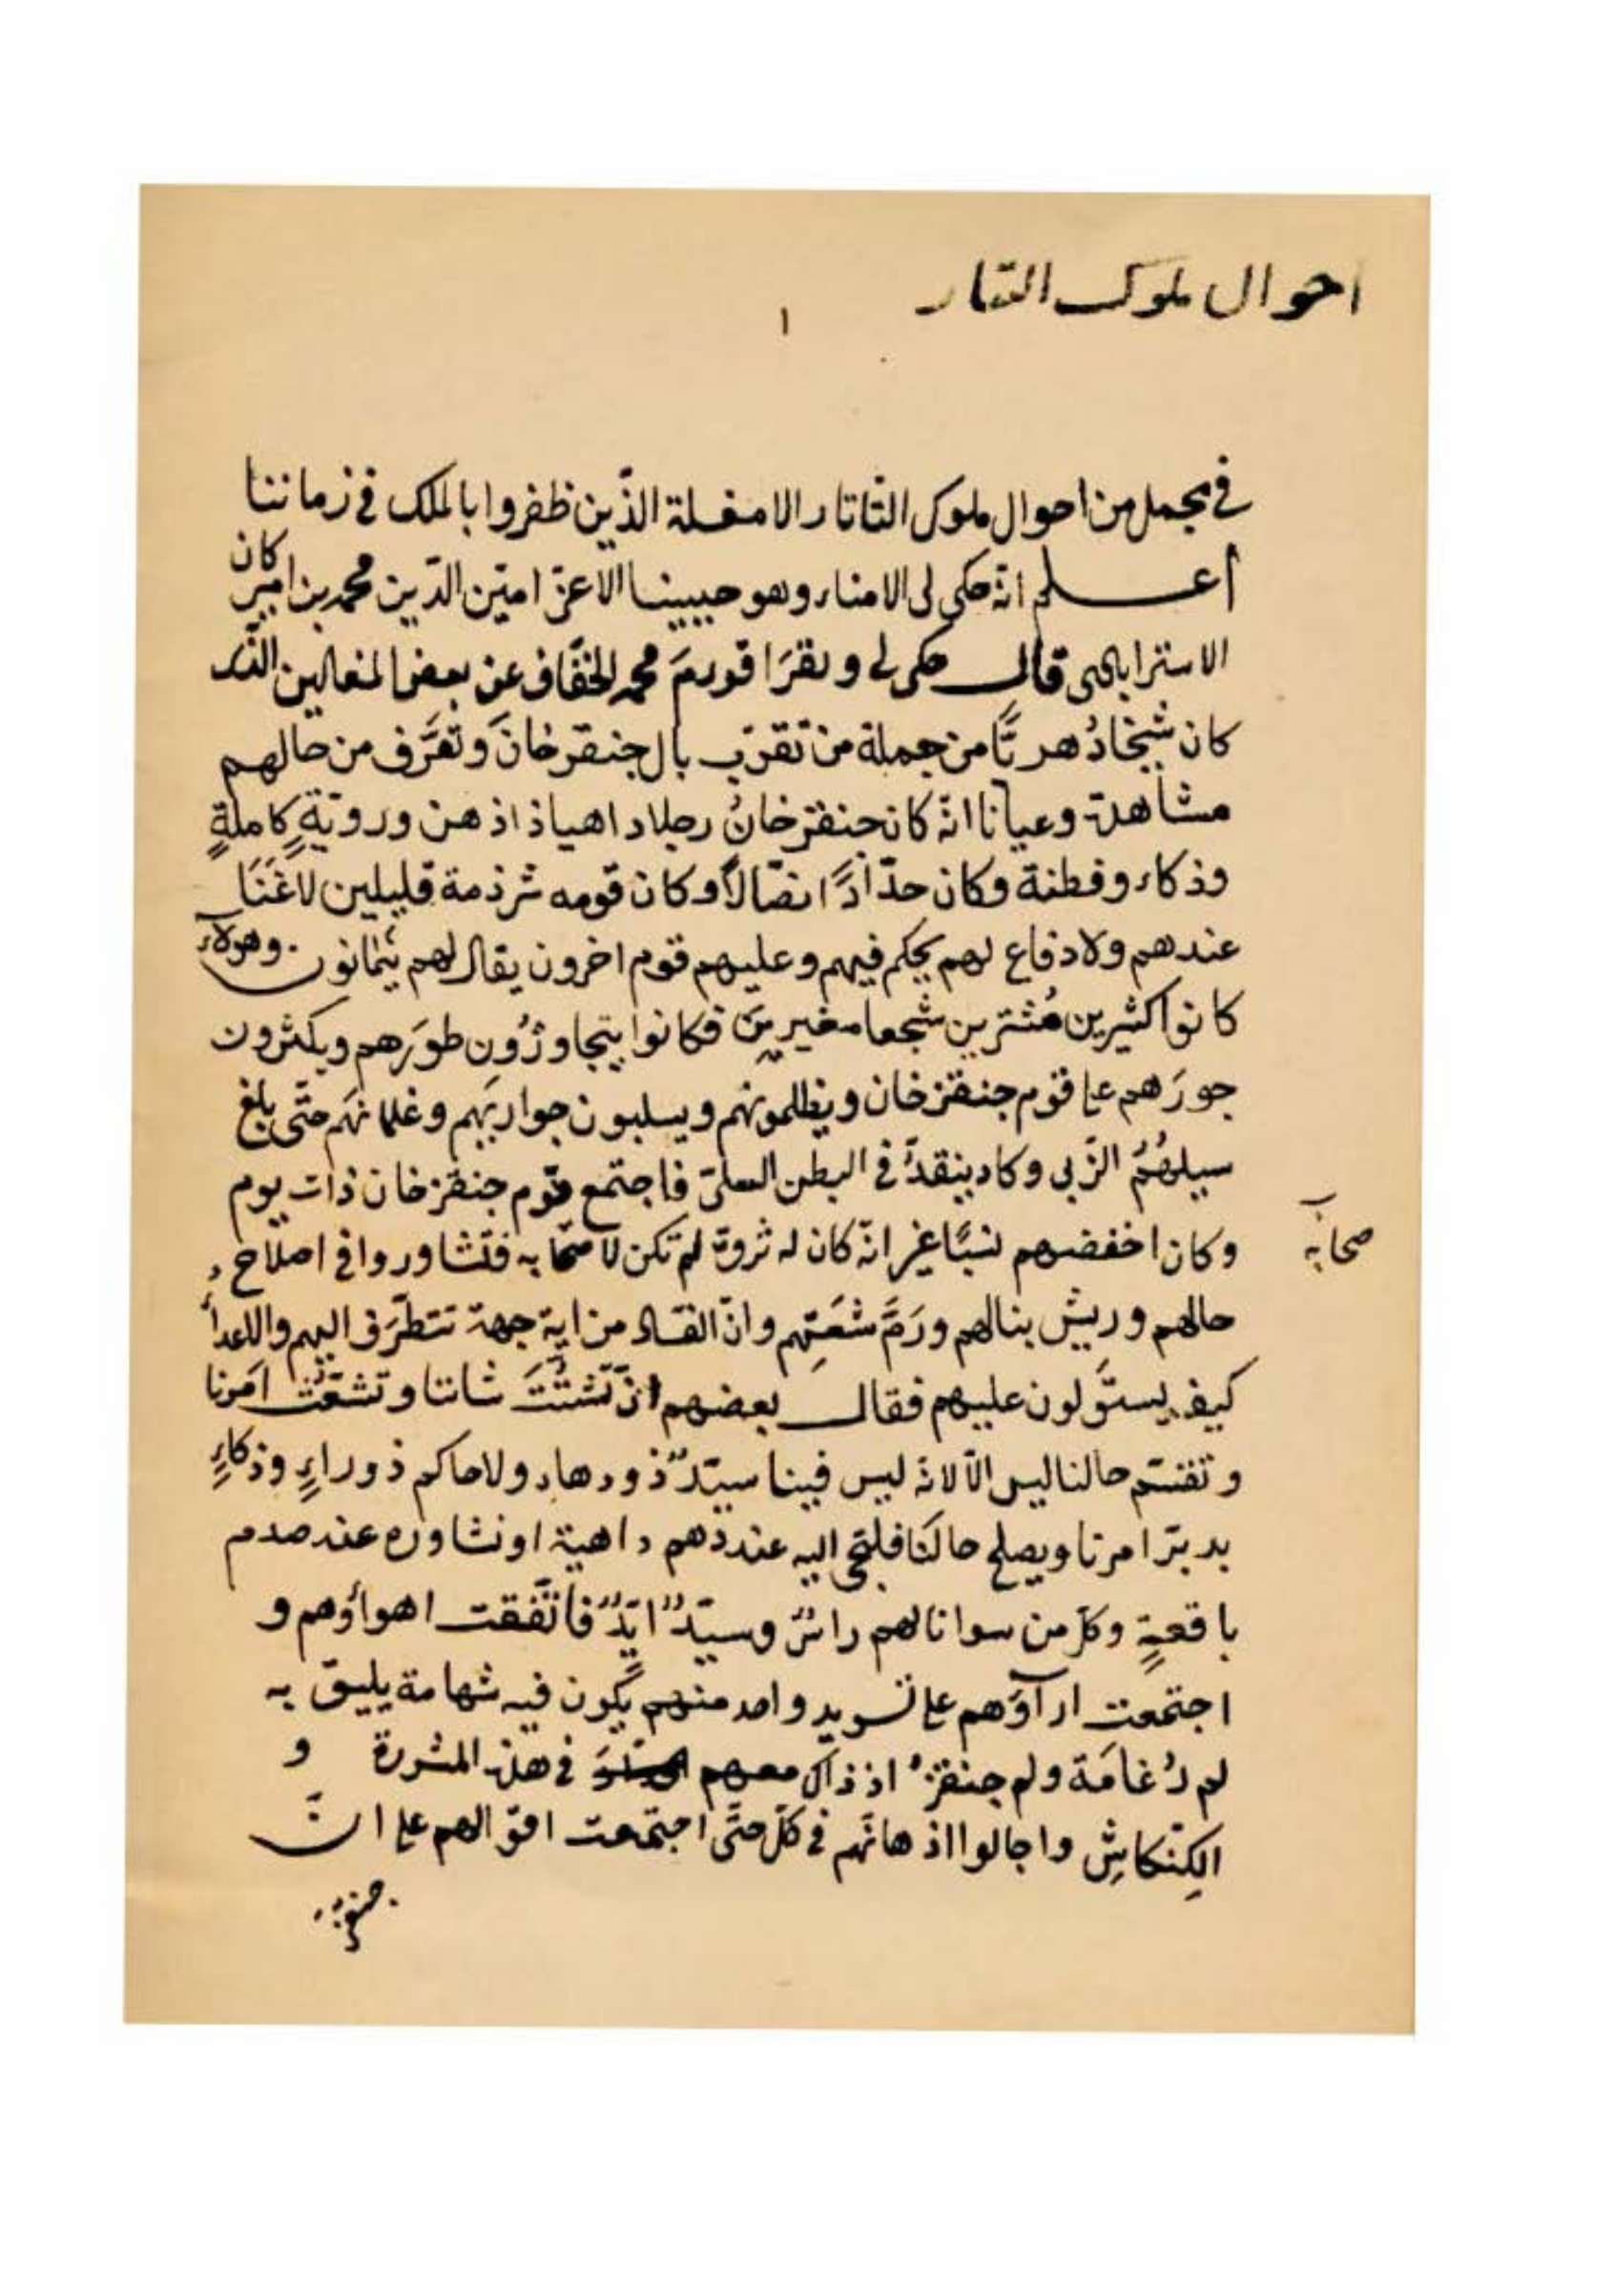 احوال ملوك التتار
١
في مجمل من احوال ملوك التاتار الامغلة الذين ظفروا بالملك في زماننا
أعلم انّه حكى لى الامناء وهو حبيبنا الاعزّ امين الدّين محمد بن امير كان
الاستراباجى قال حكى لى محمد الخفّاف عن بعض المغالين الّذى
كان شيخا دُهريّا من جملة من تقرّب بال جنقزخان وتعرَّف من حالهم
مشاهدة وعيانا انّه كان جنقزخانُ رجلا داهيا ذا ذهن ورويّةٍ كاملةٍ
وذكاء وفطنة وكان حدّادًا نصّالًا وكان قومه شرذمة قليلين لا غَنَاَ
عندهم ولا دفاع لهم يحكم فيهم وعليهم قوم اخرون يقال لهم وهولآء
كانوا كثيرين مُثترين شجعا مغيرين فكانوا يتجاوزُون طورَهم ويكثرون
جورَهم على قوم جنقزخان ويظلمونهم ويسلبون جواريهم وغلمانهم حتّى بلغ
سيلهُمُ الزّبى وكاد ينقدُّ في البطن السلىّ فاجتمع قوم جنقزخان ذات يوم
وكان اخفضهم نسبًا غير انّه كان له ثروة لم تكن لاصحابه فتشاوروا في اصلاح
صحابه
حالهم وريش بنالهم ورَمَّ شعَثِهم وانّ الفساد من اية جهة تتطرّف اليهم والاعداُ
كيف يستَولون عليهم فقال بعضهم انّ تشتُّتَ شاننا وتشعّثَ امَرنا
وتفتّم حالنا ليس الّا لانه ليس فينا سيّدٌ ذو دهاء ولا حاكم ذو راءٍ وذكاءٍ
يدبّر امرنا ويصلح حالَنا فلتجى اليه عند دهم داهية او نشاوره عند صدم
باقعةٍ وكل من سوانا لهم راسٌ وسيّدٌ ايّدٌ فاتّفقت اهواؤهم و
اجتمعت ارآؤهم على تسويد واحد منهم يكون فيه شهامة يليق به
لم دُغامَة ولم جنقزُ اذ ذاك معهم في هذه المشورة و
الكِنْكاشِ واجالوا اذهانهم في كلّ حتَّى اجتمعت اقوالهم على انّ
جنقز